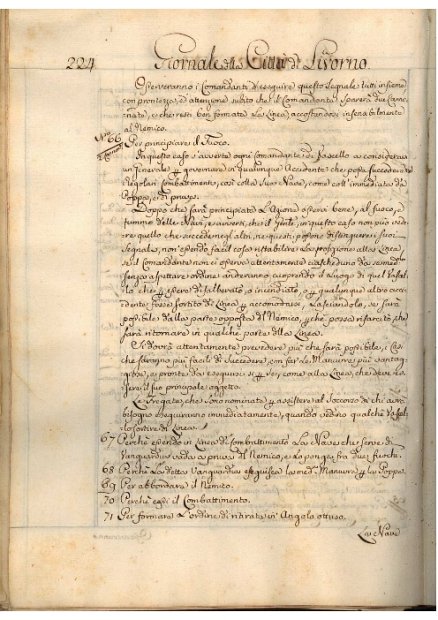 224 Giornale della Città di Livorno
Osserveranno i Comandanti d'eseguire questo segnale tutti insieme
con prontezza, ed attenzione subito che il Comandante sparerà due Canno-
nate, e che resti ben formata La Linea, accostandosi insensibilmente
al Nemico.
N.º 66 Per principiare il Fuoco.
In questo caso s'averte ogni Comandante di Vascello a considerarsi
un Generale, à governare in qualunque Accidente che possa succedere
Regolari Combattimenti, così colla sua Nave, come coll'immediata da
Poppa, e di prua.
Doppo che sarà principiata L'Azione osservi bene, al fuoco, e
fummo delle Navi, s'averti, che il in questo caso non può vede-
re quello che succede negl'altri, ne questi possono distinguere i suoi
Segnale, non essendo facil cosa ristabilire La posizione della Linea,
se il Comandante non si osserva attentamente ciascheduno da
senza aspettare ordine anderanno coprendo il Luogo di quel Vascel-
lo che per essere disalberato, o incendiato, o per qualunque altro acci-
dente fosse sortito di Linea per accomodarsi Lasciandolo, se sarà
possibile dalla parte opposta del Nemico, perche possa rifarcito che
sarà ritornare in qualche parte della Linea.
Si dovrà attentamente prevedere più che sarà possibile, i Cas
che saranno più facili di succedere, con far Le Manuvre più vantag-
giose, e pronte da eseguirsi si per se, come alla Linea, che deve es-
sere il suo principale oggetto.
Le Fregate, che sono nominate per assistere al soccorso di chi avrà
bisogno eseguiranno immediatamente, quando vedino qualche Vascel-
lo sortire di Linea.
67 Perche essendo in Linea di Combattimento La Nave che serve di
Vanguardia vada a prua del Nemico, e La ponga fra due fuochi.
68 Perche La detta Vanguardia eseguisca La med.ª Manuvra per La Poppa.
69 Per abbordare il Nemico.
70 Perche cessi il Combattimento.
71 Per formare L'ordine di ritirata in Angolo ottuso.
Le Nave